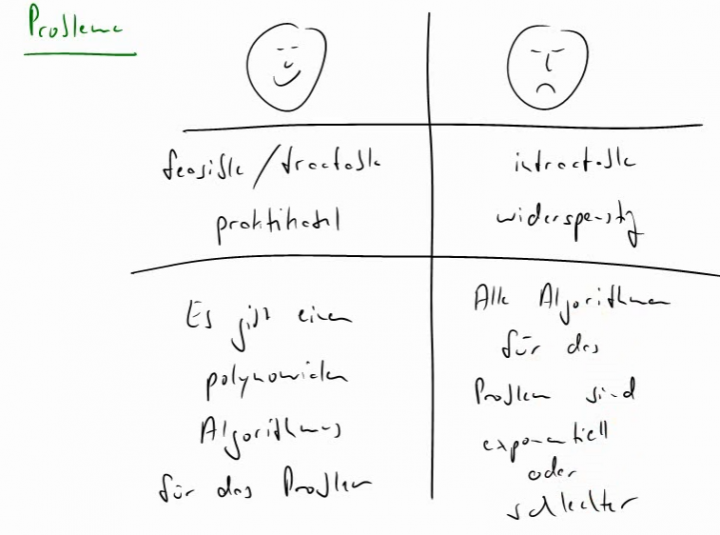 Probleme
feasible / tractable
praktikabel
intractable
widerspenstig
Es gibt einen
polynomiellen
Algorithmus
für das Problem
Alle Algorithmen
für das
Problem sind
exponentiell
oder
schlechter